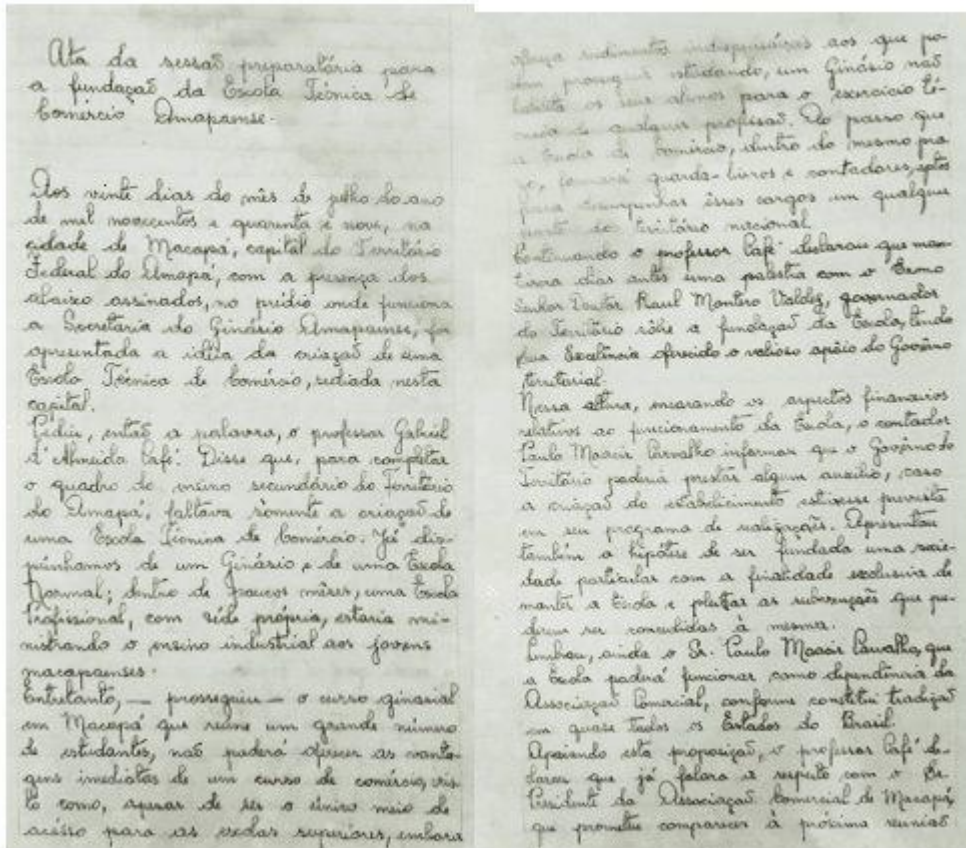 Ata da sessaõ preparatória para
a fundaçaõ da Escola Técnica de
Comércio Amapaense.
Aos vinte dias do mês de julho do ano
de mil novecentos e quarenta e nove, na
cidade de Macapá, capital do Território
Federal do Amapá, com a presença dos
abaixo assinados, no prédio onde funciona
a Secretaria do Ginásio Amapaense, foi
apresentada a idéia da criaçaõ de uma
Escola Técnica de Comércio, sediada nesta
capital.
Pediu, entaõ a palavra, o professor Gabriel
d'Almeida Café. Disse que, para completar
o quadro do ensino secundário do Território
do Amapá, faltava sòmente a criaçaõ de
uma Escola Técnica de Comércio. Já dis-
púnhamos de um Ginásio e de uma Escola
Normal; dentro de poucos mêses, uma Escola
Profissional, com séde própria, estaria mi-
nistrando o ensino industrial aos jovens
macapaenses.
Entretanto, — prosseguiu — o curso ginasial
em Macapá que reúne um grande número
de estudantes, naõ poderá oferecer as vanta-
gens imediatas de um curso de comércio, vis-
to como, apesar de ser o único meio de
acésso para as escolas superiores, embora
ofereça rudimentos indispensáveis aos que po-
dem prosseguir estudando, um Ginásio naõ
habilita os seus alunos para o exercício té-
cnico de qualquer profissaõ. Ao passo que
a Escola de Comércio, dentro do mesmo pra-
zo, formará guarda-livros e contadores, aptos
para desempenhar êsses cargos em qualquer
parte do território nacional.
Continuando o professor Café declarou que man-
tivera dias antes uma palestra com o Exmo
Senhor Doutor Raul Montero Valdez, governador
do Território sôbre a fundaçaõ da Escola, tendo
Sua Excelência oferecido o valioso apôio do Govêrno
territorial.
Nessa altura, encarando os aspectos financeiros
relativos ao funcionamento da Escola, o contador
Paulo Moacir Carvalho informou que o Govêrno do
Território poderia prestar algum auxílio, caso
a criaçaõ do estabelecimento estivesse prevista
em seu programa de realizações. Apresentou
também a hipótese de ser fundada uma socie-
dade particular com a finalidade exclusiva de
manter a Escola e pleitear as subvenções que pu-
dessem ser concedidas à mesma.
Lembrou, ainda o Sr. Paulo Moacir Carvalho, que
a Escola poderá funcionar como dependência da
Associaçaõ Comercial, conforme constitui tradiçaõ
em quase todos os Estados do Brasil.
Apoiando esta proposiçaõ, o professor Café de-
clarou que já falara a respeito com o Sr.
Presidente da Associaçaõ Comercial de Macapá,
que prometeu comparecer à próxima reuniaõ